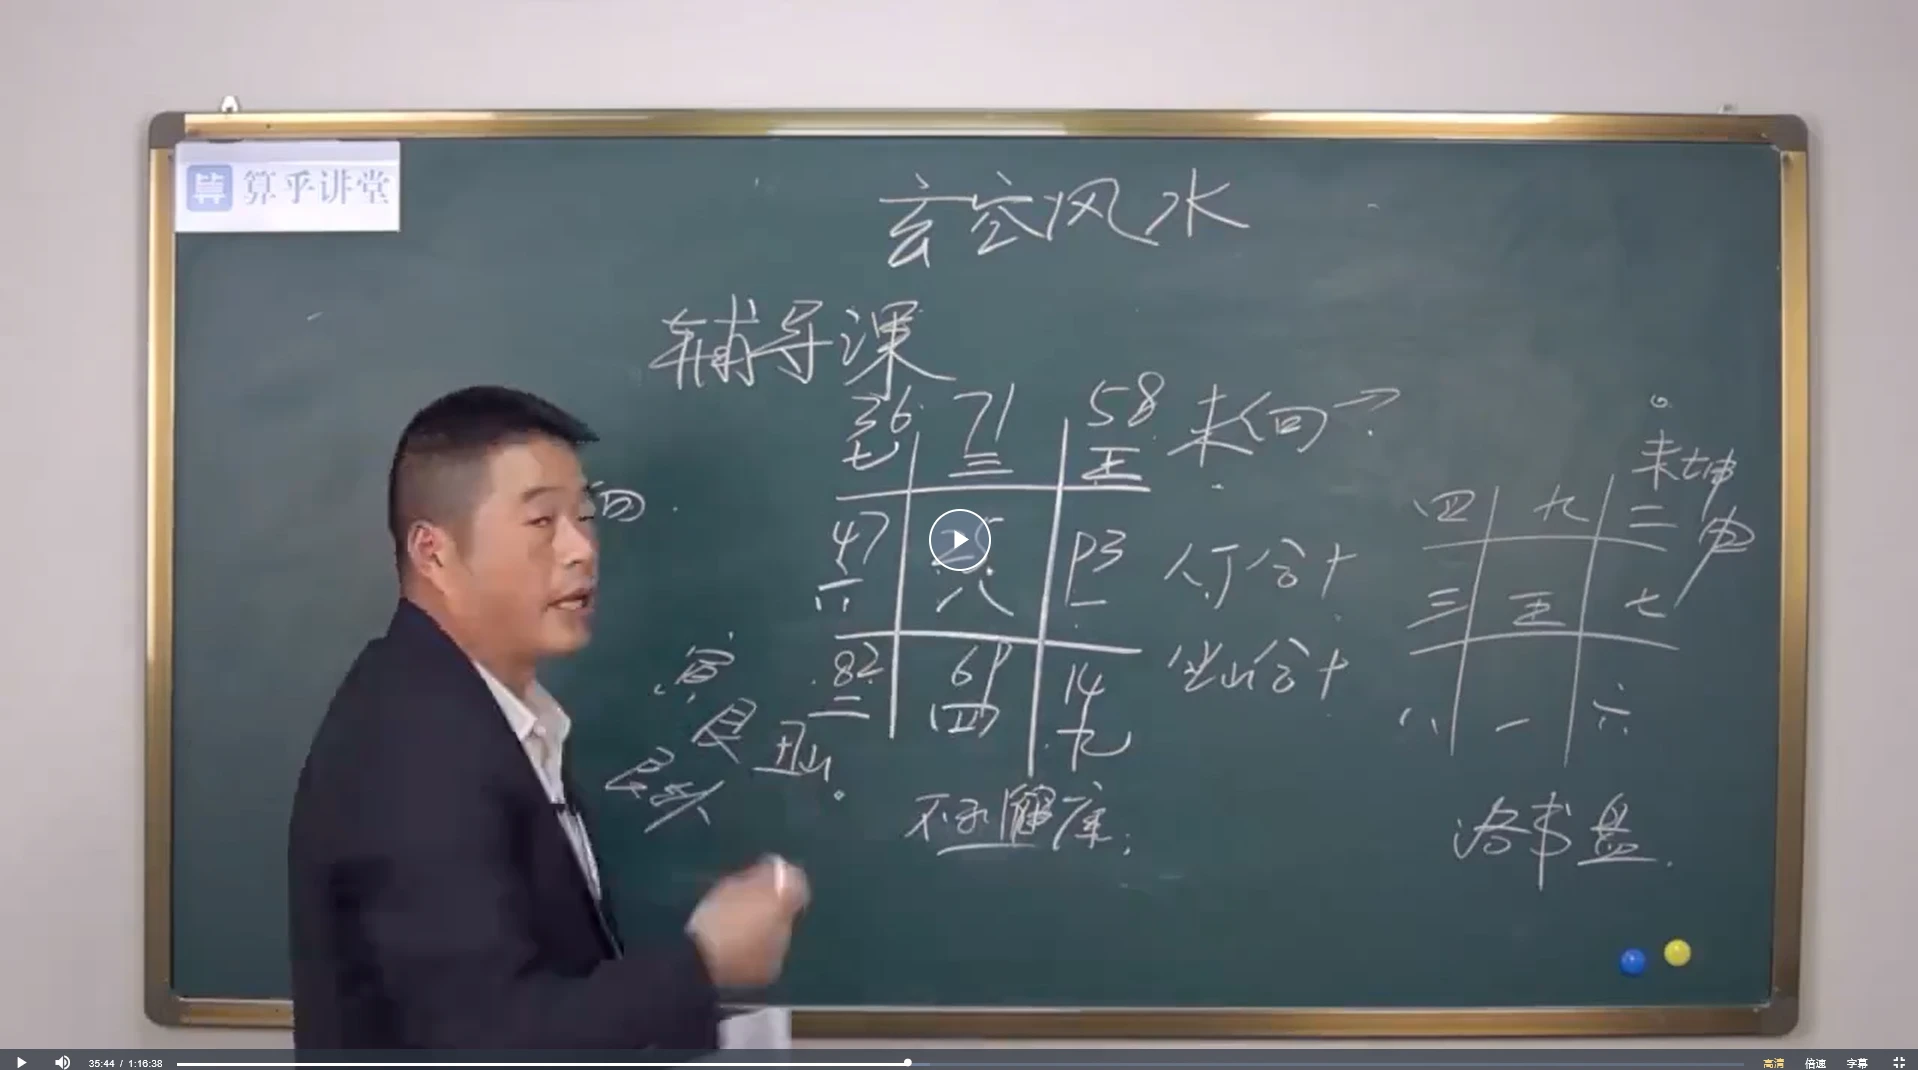 算乎讲堂
玄空风水
辅导课
36 71 58 未向?
七 三 五
向.
47 93 人丁合十
六 八 一
82 69 14 坐山合十
二 四 九
寅
艮
丑山
未坤申
四 九 二
三 五 七
八 一 六
洛书盘
35:44 / 1:16:38
高清 倍速 字幕